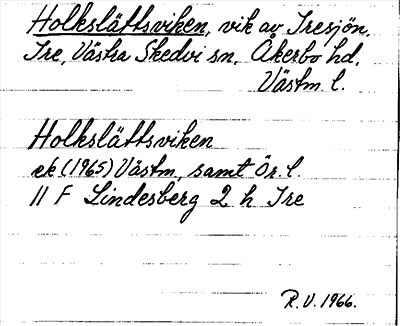 Holkslättsviken, vik av Iresjön.
Ire, Västra Skedvi sn. Åkerbo hd.
Västm l.
Holkslättsviken
ek (1965) Västm, samt Ör. l.
11 F Lindesberg 2 h Ire
R.V. 1966.